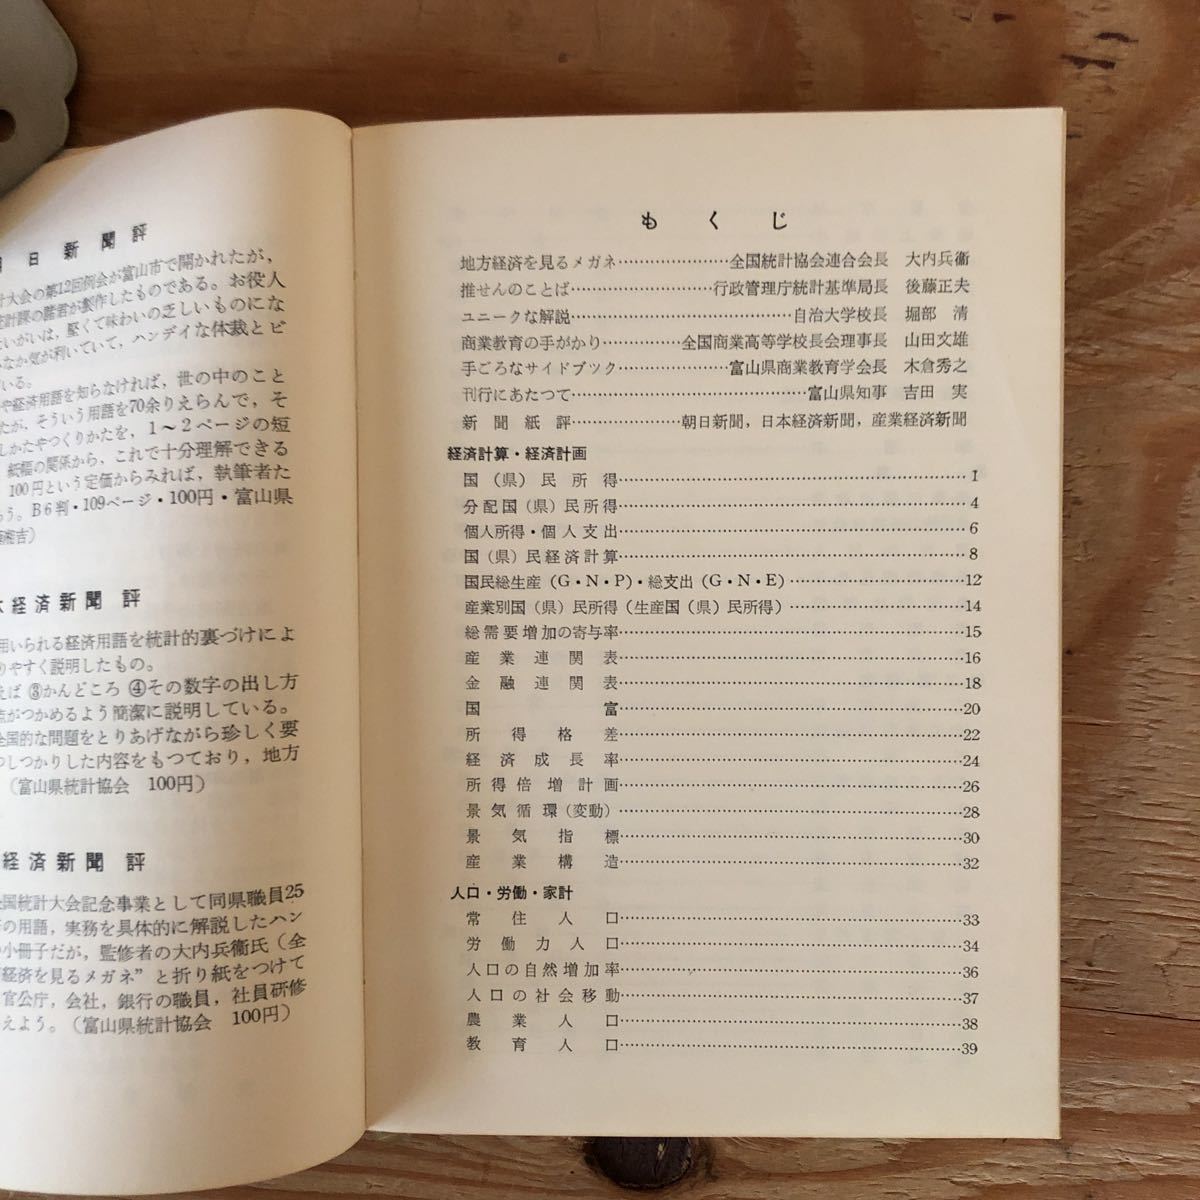 日新聞評
計大会の第12回例会が富山市で開かれたが，
統計課の諸君が製作したものである。お役人
いがいは，堅くて味わいの乏しいものにな
なか気が利いていて，ハンデイな体裁とピ
いる。
や経済用語を知らなければ，世の中のこと
たが，そういう用語を70余りえらんで，そ
しかたやつくりかたを，1～2ページの短
紙幅の関係から，これで十分理解できる
100円という定価からみれば，執筆者た
う。B6判・109ページ・100円・富山県
経済新聞 評
用いられる経済用語を統計的裏づけによ
りやすく説明したもの。
えば ③かんどころ ④その数字の出し方
点がつかめるよう簡潔に説明している。
全国的な問題をとりあげながら珍しく要
つしつかりした内容をもつており，地方
（富山県統計協会 100円）
経済新聞 評
全国統計大会記念事業として同県職員25
の用語，実務を具体的に解説したハン
小冊子だが，監修者の大内兵衞氏（全
経済を見るメガネ”と折り紙をつけて
官公庁，会社，銀行の職員，社員研修
えよう。（富山県統計協会 100円）
もくじ
地方経済を見るメガネ……………………全国統計協会連合会長 大内兵衞
推せんのことば……………………行政管理庁統計基準局長 後藤正夫
ユニークな解説……………………自治大学校長 堀部 清
商業教育の手がかり……………………全国商業高等学校長会理事長 山田文雄
手ごろなサイドブツク……………………富山県商業教育学会長 木倉秀之
刊行にあたつて……………………富山県知事 吉田 実
新聞紙評……………………朝日新聞，日本経済新聞，産業経済新聞
経済計算・経済計画
国（県）民所得……………………1
分配国（県）民所得……………………4
個人所得・個人支出……………………6
国（県）民経済計算……………………8
国民総生産（G・N・P）・総支出（G・N・E）……………………12
産業別国（県）民所得（生産国（県）民所得）……………………14
総需要増加の寄与率……………………15
産業連関表……………………16
金融連関表……………………18
国富……………………20
所得格差……………………22
経済成長率……………………24
所得倍増計画……………………26
景気循環（変動）……………………28
景気指標……………………30
産業構造……………………32
人口・労働・家計
常住人口……………………33
労働力人口……………………34
人口の自然増加率……………………36
人口の社会移動……………………37
農業人口……………………38
教育人口……………………39